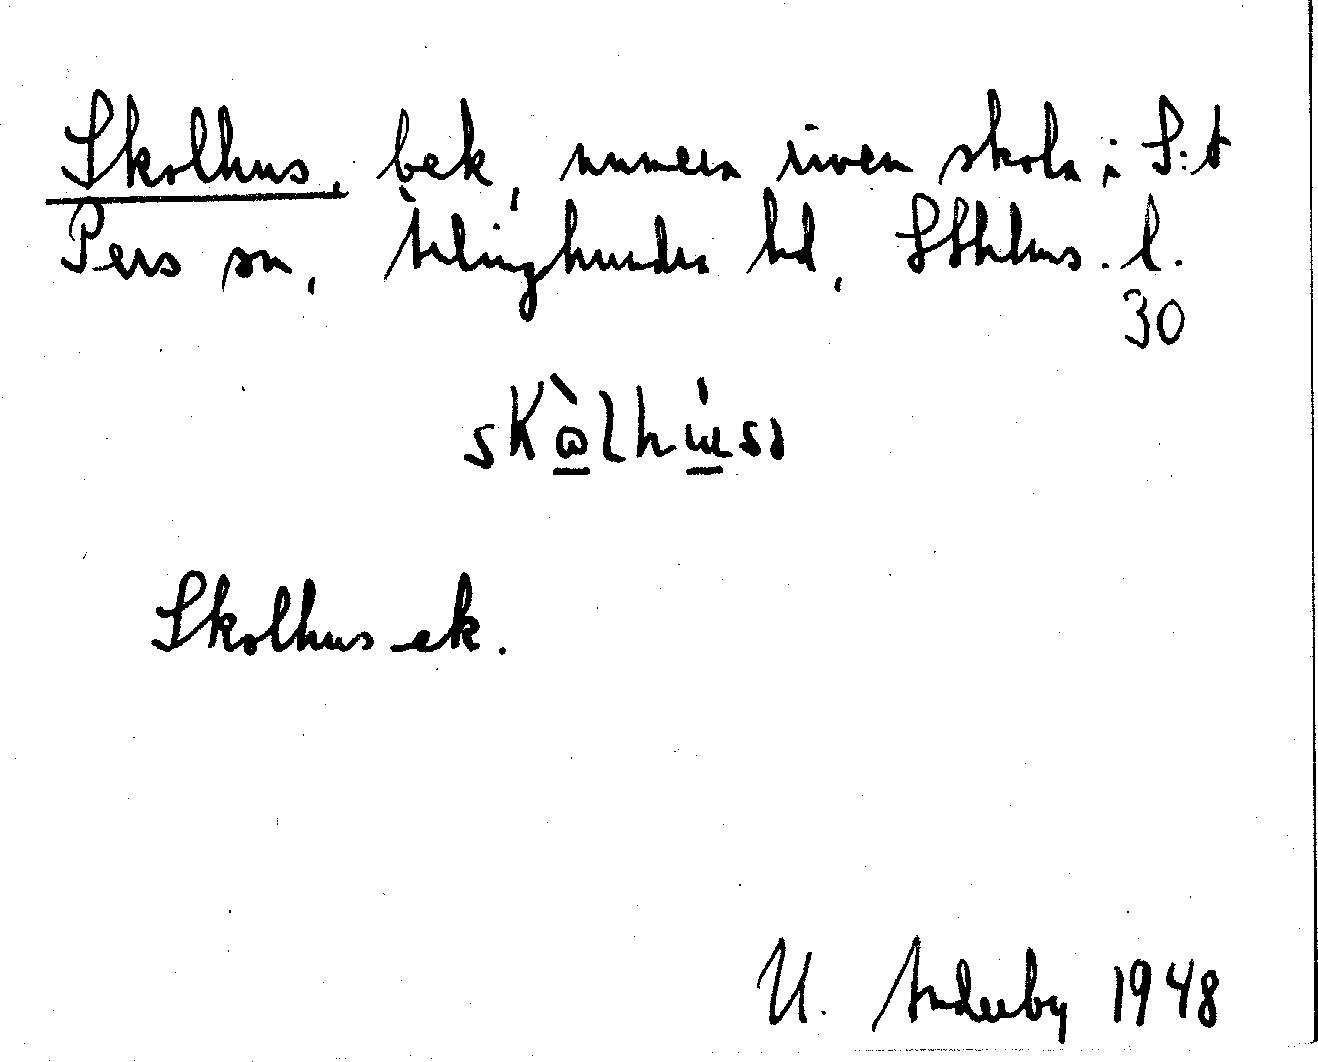 Skolhus, bek, numera riven skola i S:t
Pers sn, Ärlinghundra hd, Sthlms. l.
30
skɷ̀lhúsə
Skolhus ek.
U. Anderby 1948